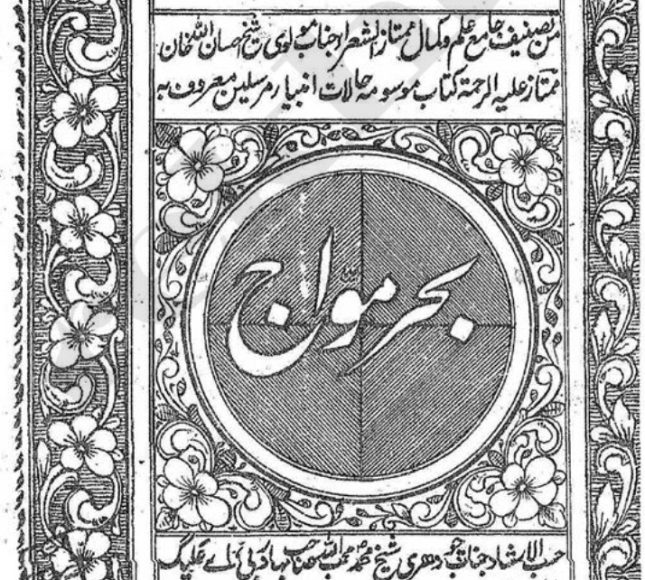 من تصنیف جامع علم وکمال ممتاز الشعرا جناب مولوی شیخ احسان اللہ خان
ممتاز علیہ الرحمۃ کتاب موسومہ حالات انبیا مرسلین معروف بہ
بحر موّاج
حسب الارشاد جناب چودھری شیخ محمد محب اللہ صاحب بہادر بی اے علیگ